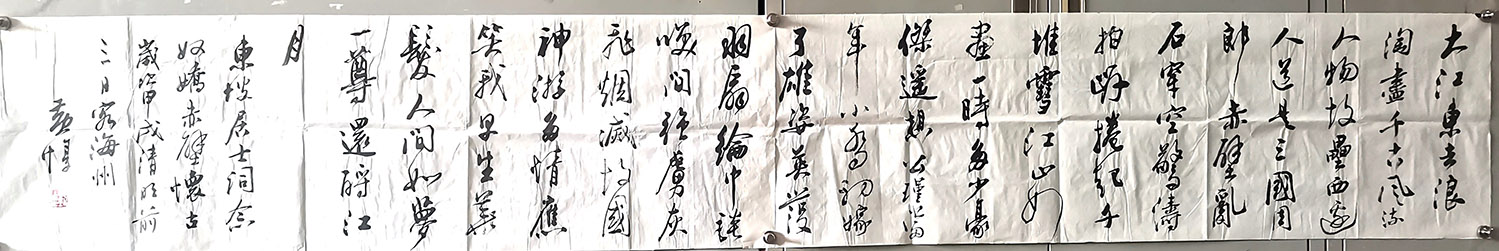 大江東去浪
淘盡千古風流
人物故壘西邊
人道是三國周
郎赤壁亂
石穿空驚濤
拍岸捲起千
堆雪江山如
畫一時多少豪
傑遥想公瑾當
年小喬初嫁
了雄姿英發
羽扇綸巾談
笑間強虜灰
飛烟滅故國
神游多情應
笑我早生華
髮人間如夢
一尊還酹江
月
東坡居士詞念
奴嬌赤壁懷古
歲當甲戌清明前
三日客海州